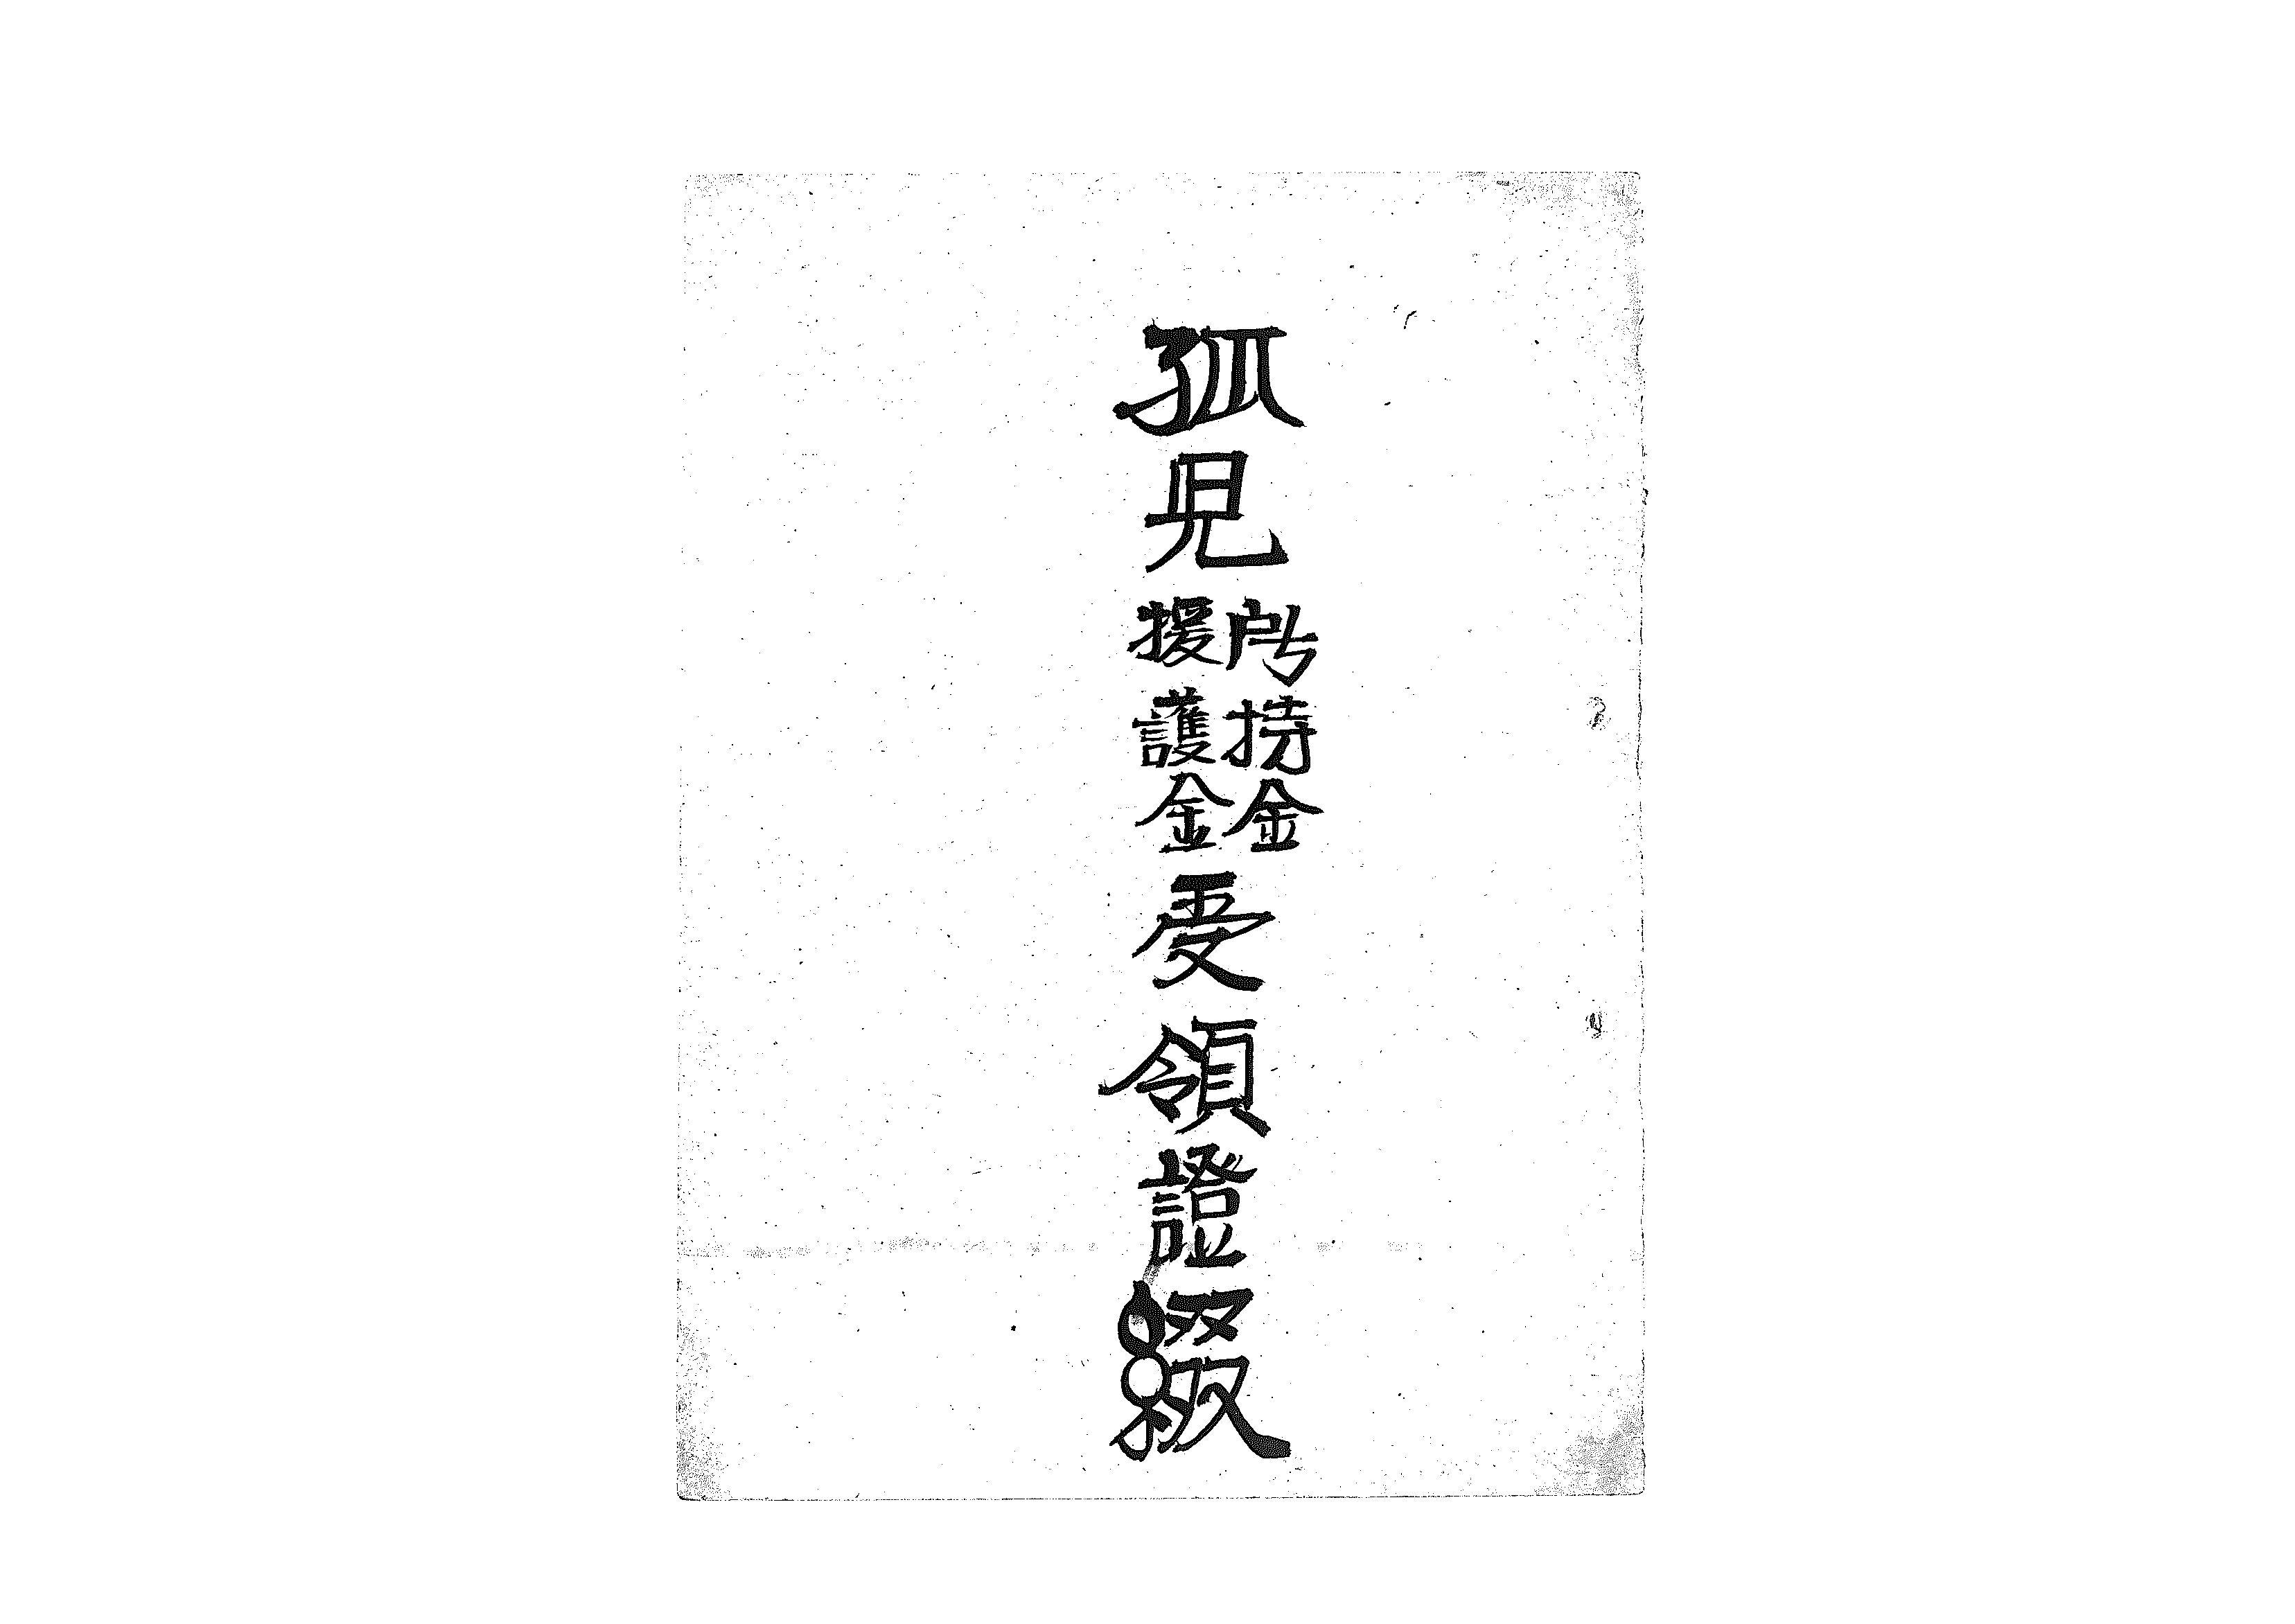 孤児
所持金
援護金
受領證綴